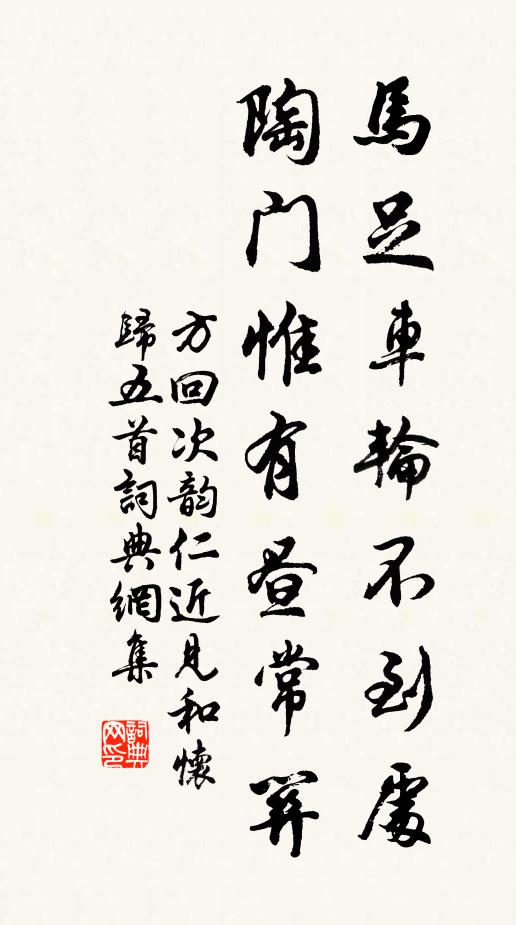 馬足車輪不到處
陶門惟有昼常關
方回次韵仁近見和懷
歸五首詞典網集
詞典
网印